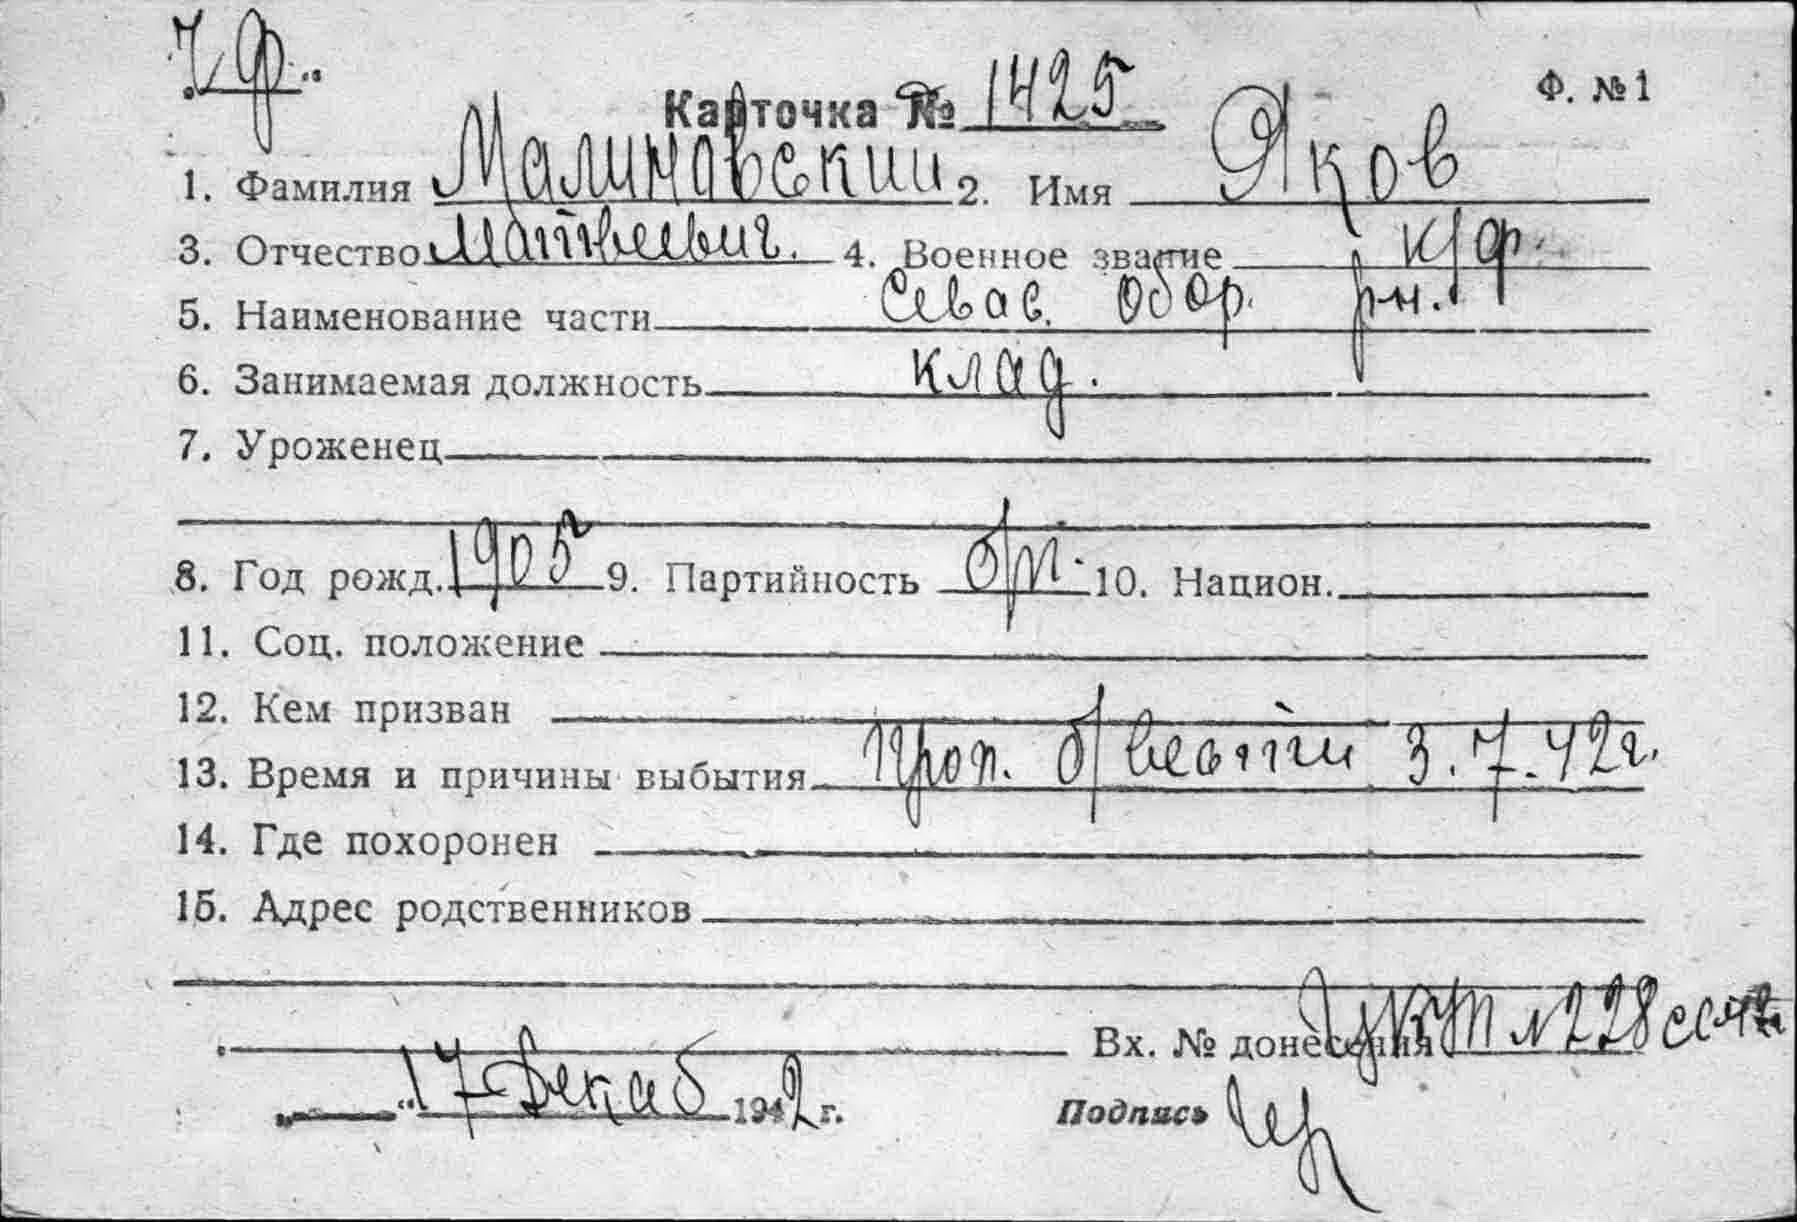 „Ч Ф.“
Ф. №1
Карточка № 1425
1. Фамилия Малиновский 2. Имя Яков
3. Отчество Матвеевич. 4. Военное звание к/ф.
5. Наименование части Севас. обор. р-н.
6. Занимаемая должность клад.
7. Уроженец
8. Год рожд. 1905 г 9. Партийность б/п. 10. Национ.
11. Соц. положение
12. Кем призван
13. Время и причины выбытия Проп. б/вести 3.7.42г.
14. Где похоронен
15. Адрес родственников
Вх. № донесения №228сс
„ “ 17 Декаб 1942 г.
Подпись